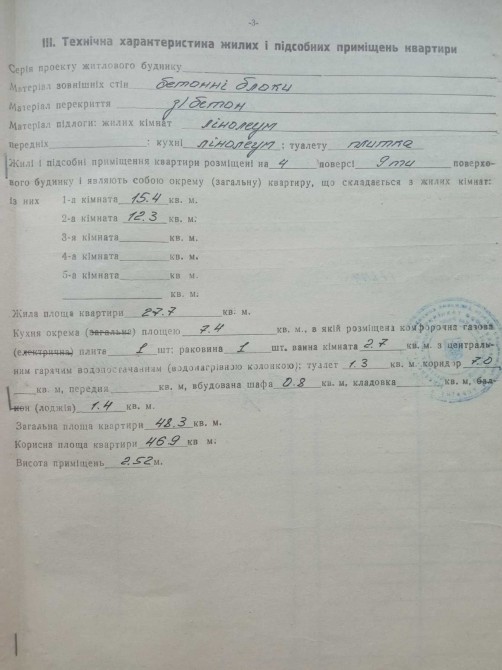 -3-
III. Технічна характеристика жилих і підсобних приміщень квартири
Серія проекту житлового будинку
Матеріал зовнішніх стін бетонні блоки
Матеріал перекриття з/бетон
Матеріал підлоги: жилих кімнат лінолеум
передніх : кухні лінолеум ; туалету плитка
Жилі і підсобні приміщення квартири розміщені на 4 поверсі 9ти поверхо-
вого будинку і являють собою окрему (загальну) квартиру, що складається з жилих кімнат:
із них 1-а кімната 15.4 кв. м.
2-а кімната 12.3 кв. м.
3-я кімната кв. м.
4-а кімната кв. м.
5-а кімната кв м.
кв. м.
Жила площа квартири 27.7 кв. м.
Кухня окрема (загальна) площею 7.4 кв. м., в якій розміщена комфорочна газова
(електрична) плита 1 шт; раковина 1 шт, ванна кімната 2.7 кв. м з централь-
ним гарячим водопостачанням (водонагрівною колонкою); туалет 1.3 кв. м. коридор 7.0
кв. м, передня кв. м, вбудована шафа 0.8 кв. м. кладовка кв. м, бал-
кон (лоджія) 1.4 кв. м.
Загальна площа квартири 48.3 кв. м.
Корисна площа квартири 46.9 кв м.
Висота приміщень 2.52 м.